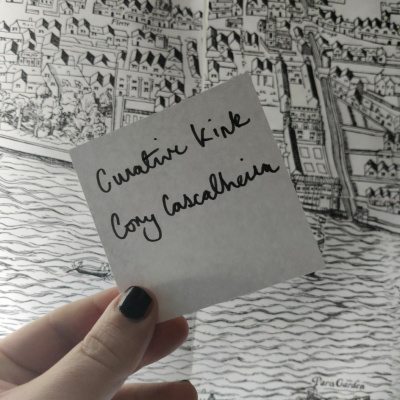 Curative Kink
Cory Cascalheira
Paris Garden